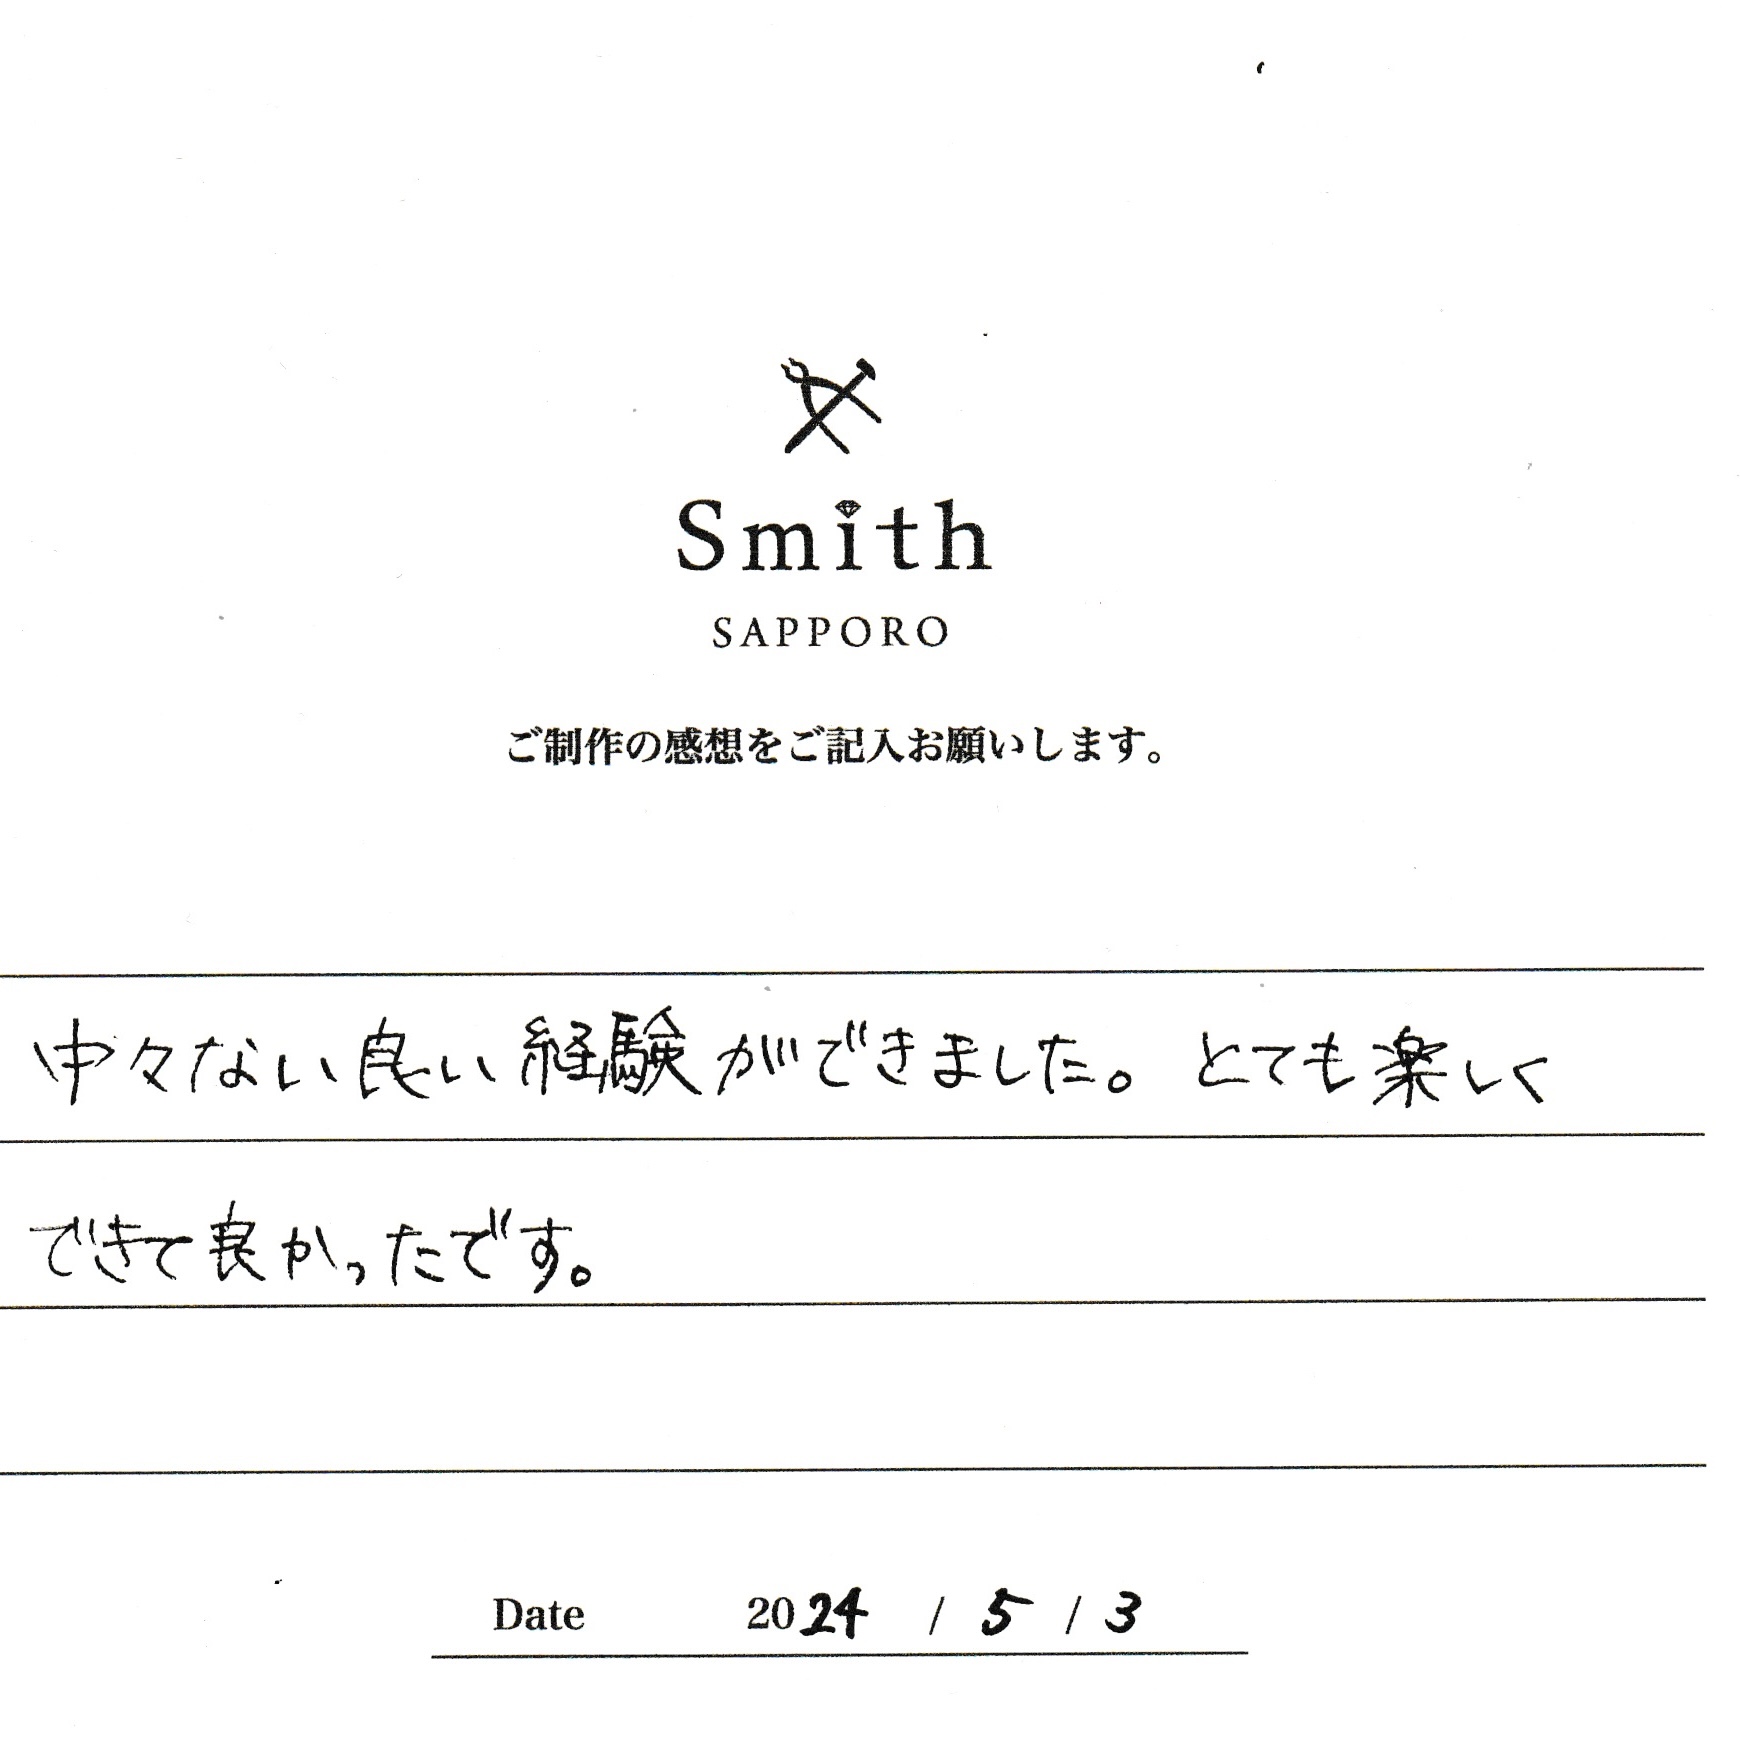 Smith
SAPPORO
ご制作の感想をご記入お願いします。
中々ない良い経験ができました。とても楽しく
できて良かったです。
Date 2024 / 5 / 3